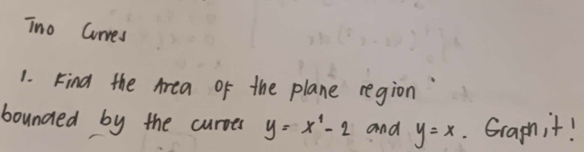 Two Curves
1. Find the Area of the plane region
bounded by the curves y = x² - 2 and y = x. Graph it!